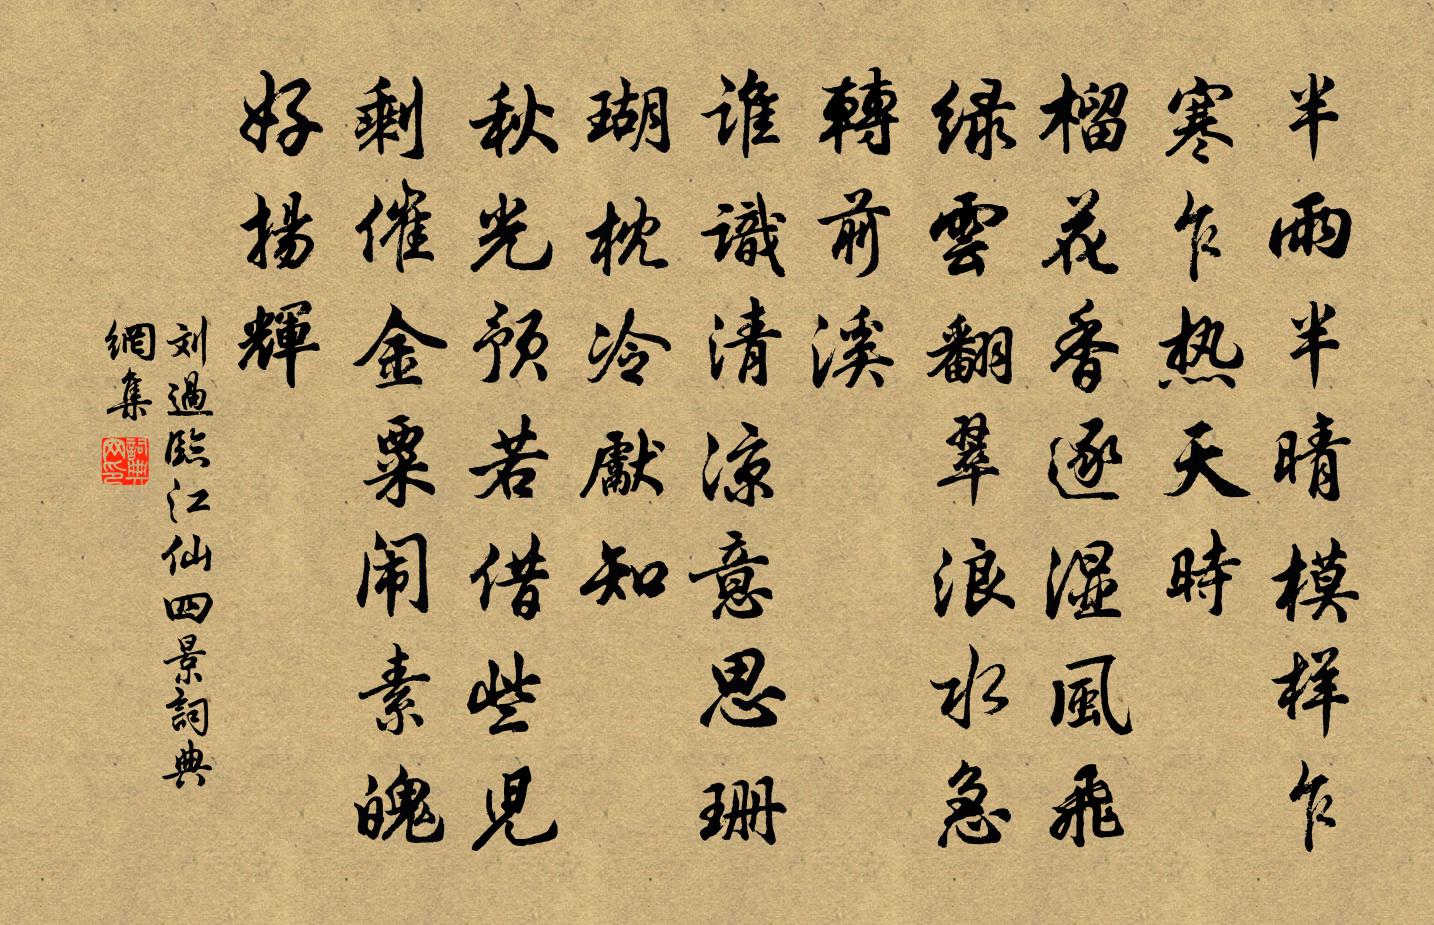 半雨半晴模样乍
寒乍热天時
榴花香逐湿風飛
绿雲翻翠浪水急
轉前溪
谁識清凉意思珊
瑚枕冷獻知
秋光预若借些兒
剩催金粟闹素魄
好揚輝
刘過臨江仙四景詞典
網集
詞典
网印